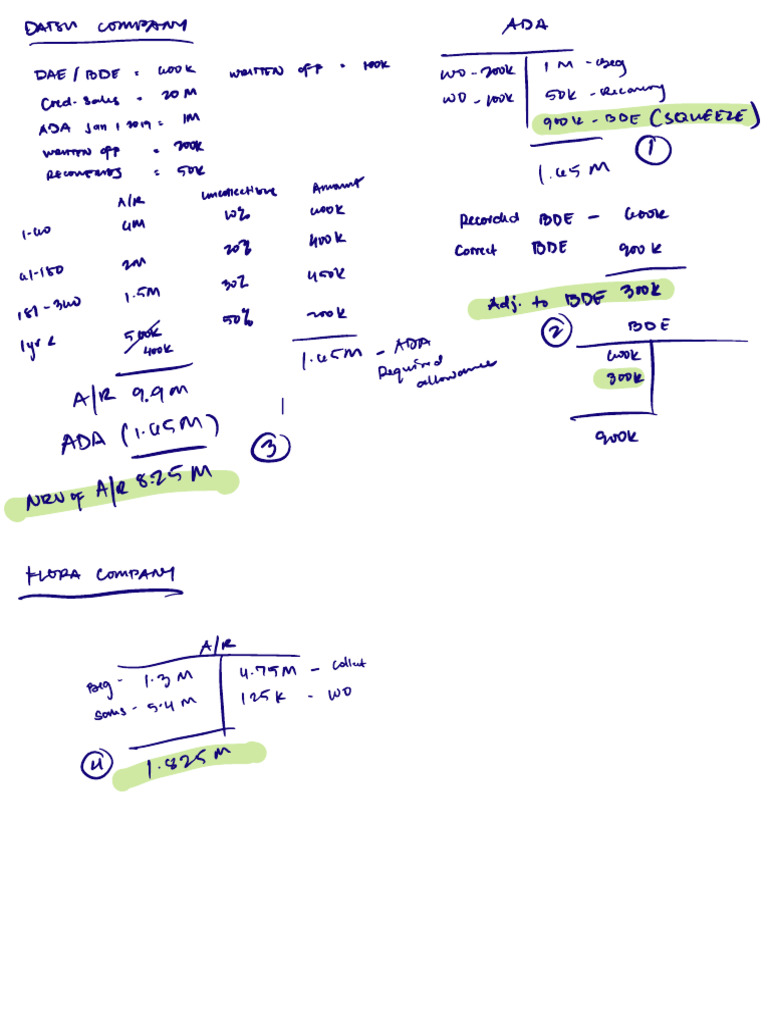 DATSU COMPANY
DAE / BDE = 600k WRITTEN OFF = 100k
Cred. Sales = 20 M
ADA Jan 1, 2019 = 1M
WRITTEN OFF = 200k
RECOVERIES = 50k
A/R uncollectible Amount
1-60 6M 10% 600k
61-180 2M 20% 400k
181-360 1.5M 30% 450k
1yr < 500k 50% 200k
400k
1.65M - ADA
Required
allowance
A/R 9.9M
ADA (1.65M)
3
NRV of A/R 8.25 M
ADA
WO - 200k 1M - Beg
WO - 100k 50k - Recovery
900k - BDE (SQUEEZE)
1
1.65M
Recorded BDE - 600k
Correct BDE 900k
Adj. to BDE 300k
2
BDE
600k
300k
900k
FLORA COMPANY
A/R
Beg - 1.3 M 4.75M - Collect
Sales - 5.4 M 125k - WO
4
1.825 M